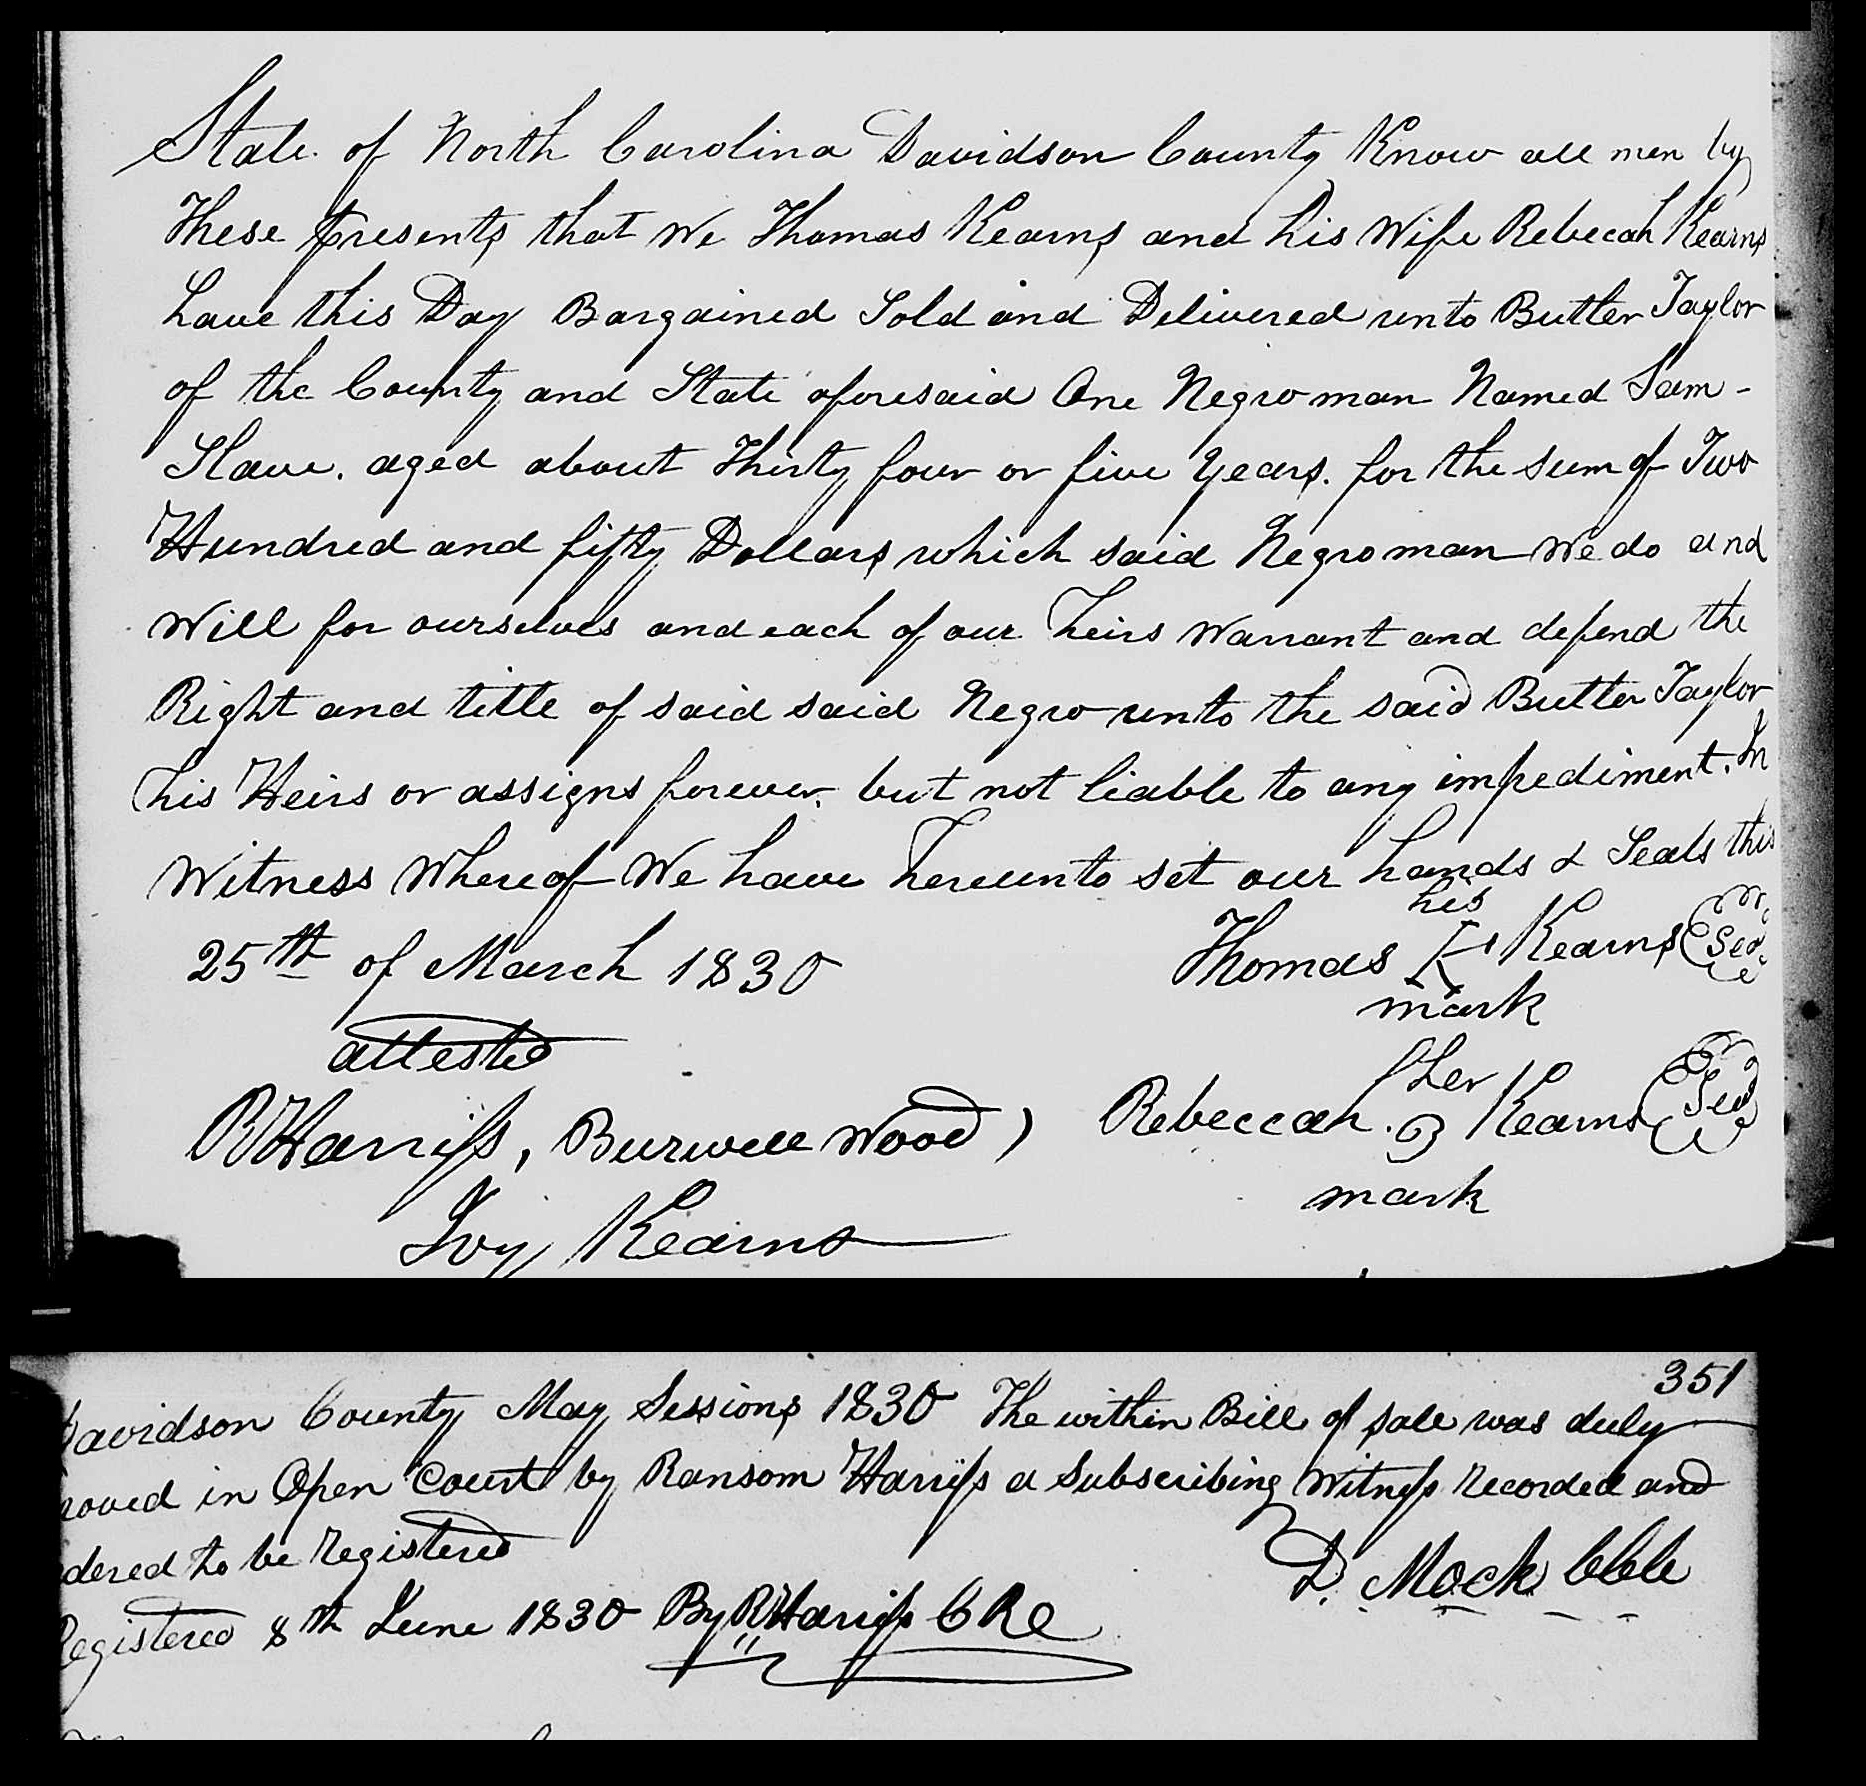 State of North Carolina Davidson County Know all men by
These Presents that We Thomas Kearns and his Wife Rebecah Kearns
have this Day Bargained Sold and Delivered unto Butler Taylor
of the County and State aforesaid One Negro man Named Sam -
Slave. aged about Thirty four or five Years. for the sum of Two
Hundred and fifty Dollars which said Negro man We do and
Will for ourselves and each of our heirs Warrant and defend the
Right and title of said said Negro unto the said Butler Taylor
his Heirs or assigns forever. but not liable to any impediment. In
Witness Whereof We have hereunto set our hands & Seals this
25th of March 1830
his
Thomas K Kearns Seal
mark
attested
her
Rebeccah. 3 Kearns Seal
mark
R Harriss, Burwell Wood)
Ivy Kearns
351
Davidson County May Sessions 1830 The within Bill of sale was duly
roved in Open Court by Ransom Harriss a Subscribing Witness Recorded and
dered to be Registered
D. Mock CCC
Registered 8th June 1830 By R Harriss